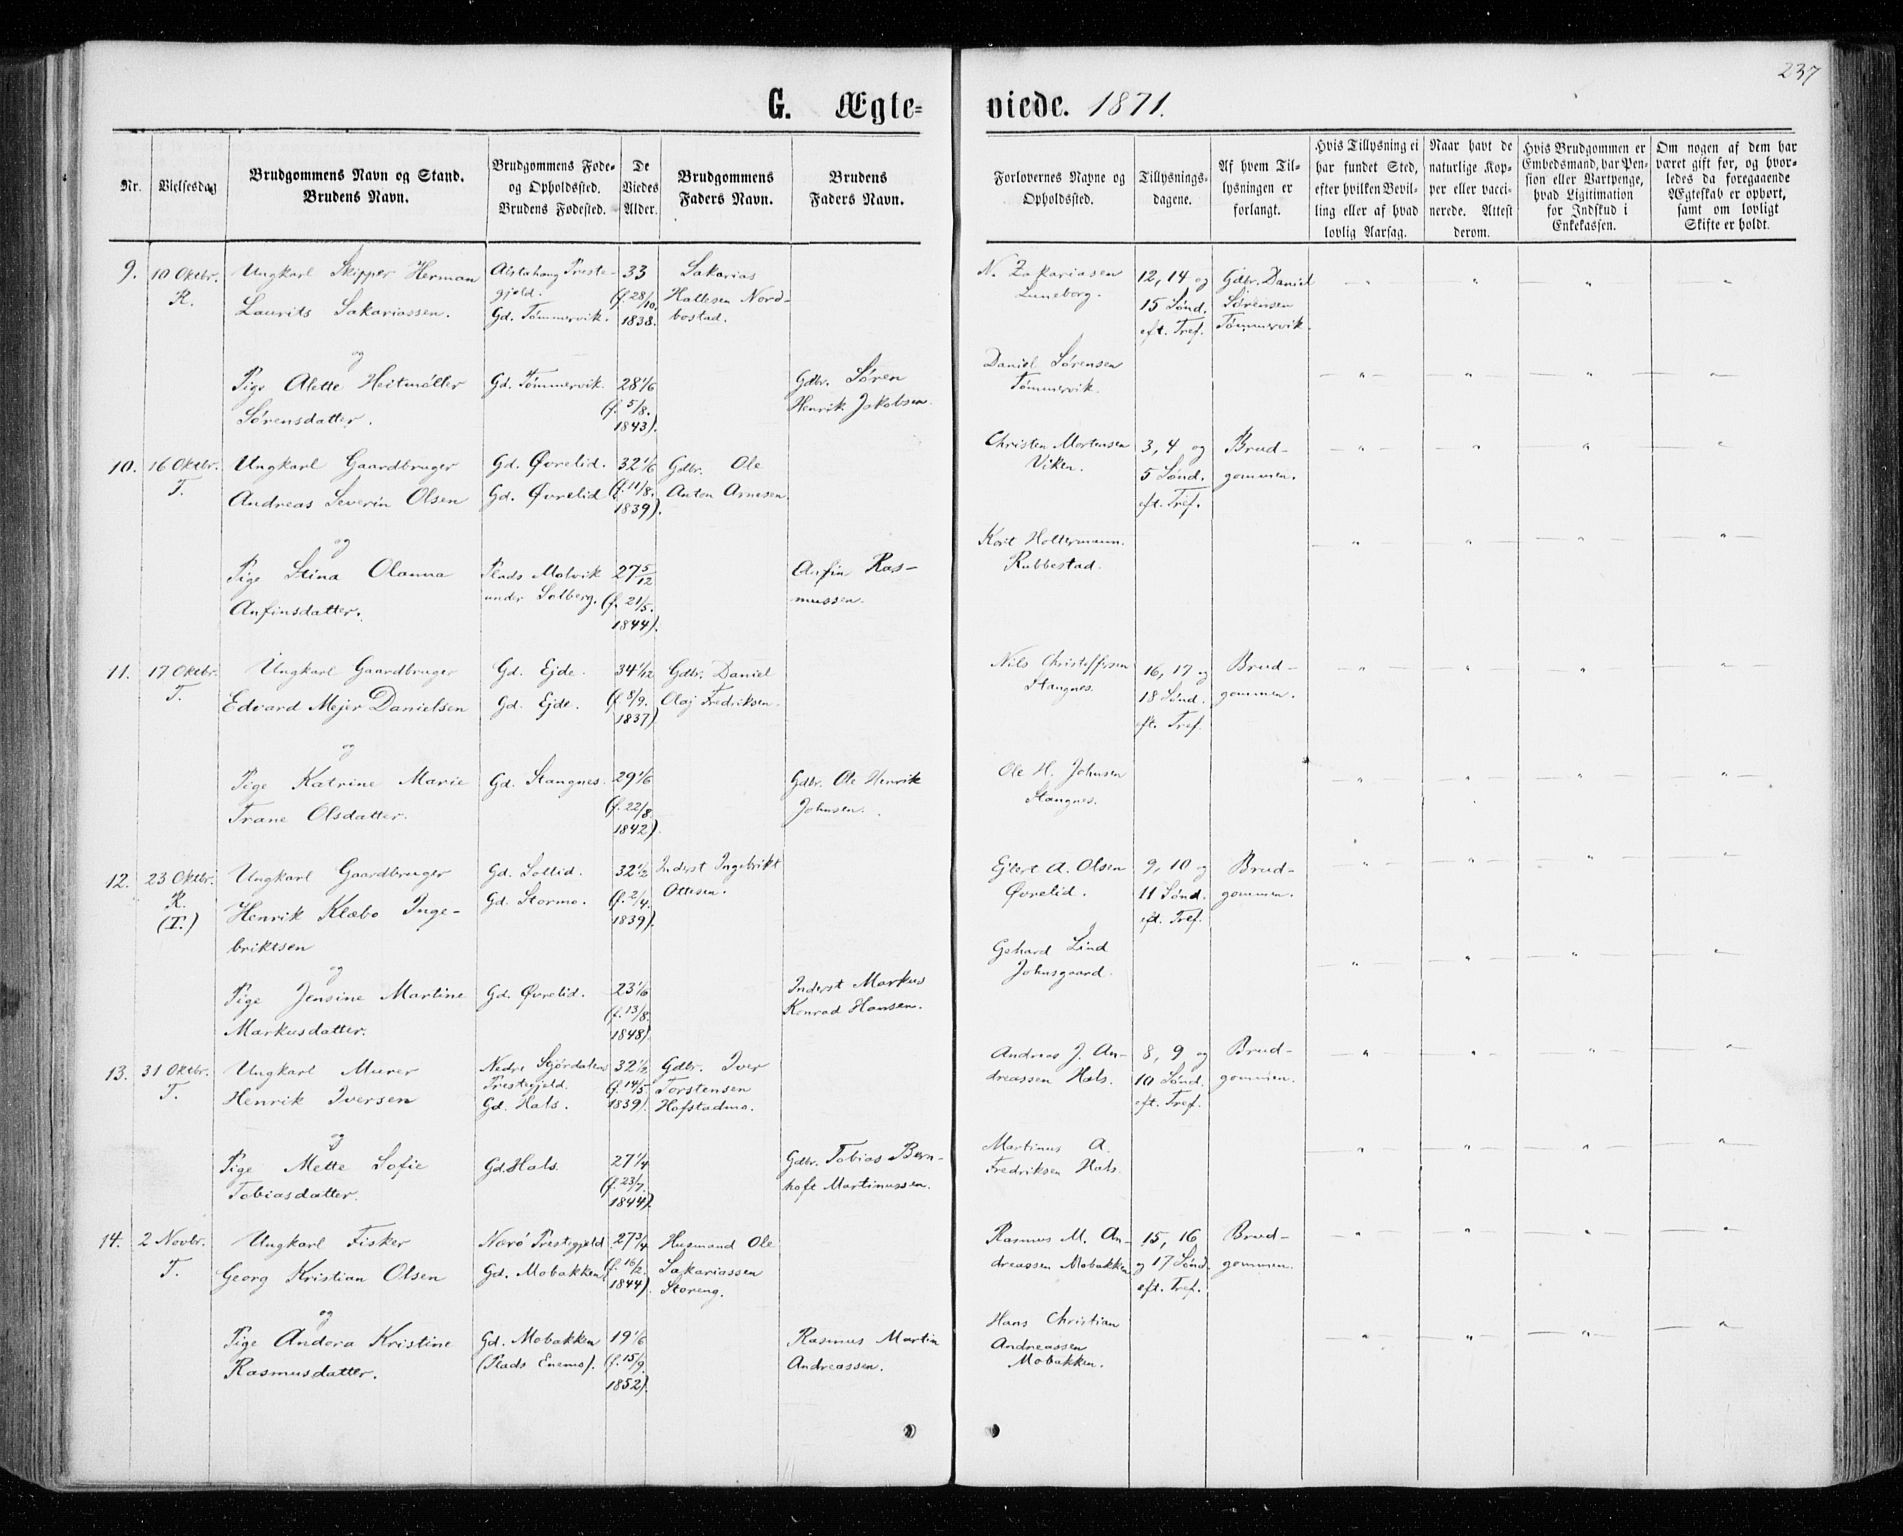 237
G. Ægte= viede. 1871.
Nr.
Vielsesdag
Brudgommens Navn og Stand.
Brudens Navn.
Brudgommens Føde=
og Opholdssted.
Brudens Fødested.
De
Viedes
Alder.
Brudgommens
Faders Navn.
Brudens
Faders Navn.
Forlovernes Navne og
Opholdssted.
Tillysnings=
dagene.
Af hvem Til=
lysningen er
forlangt.
Hvis Tillysning ei
har fundet Sted,
efter hvilken Bevil=
ling eller af hvad
lovlig Aarsag.
Naar havt de
naturlige Kop=
per eller vacci=
nerede. Attest
derom.
Hvis Brudgommen er
Embedsmand, har Pen=
sion eller Vartpenge,
hvad Ligitimation
for Indskud i
Enkekassen.
Om nogen af dem har
været gift før, og hvor=
ledes da foregaaende
Ægteskab er ophørt,
samt om lovligt
Skifte er holdt.
9.
10 Oktbr.
R.
Ungkarl Skipper Herman
Laurits Sakariassen.
og
Pige Alette Heitmøller
Sørensdatter.
Alstahaug Preste-
gjeld.
Gd. Tømmervik.
Gd. Tømmervik.
33
(f. 28/10.
1838.
28 1/6
(f. 5/8.
1843).
Sakarias
Hallesen Nord-
bostad.
Gdbr. Søren
Henrik Jakobsen.
N. Zakariasen
Luneborg.
Daniel Sørensen
Tømmervik.
12, 14 og
15 Sønd.
eft. Tref.
Gdbr. Daniel
Sørensen
Tømmervik.
10.
16 Oktbr.
T.
Ungkarl Gaardbruger
Andreas Severin Olsen
og
Pige Stina Olanna
Anfinsdatter.
Gd. Øvrelid.
Gd. Øvrelid
Plads Molvik
under Solberg.
32 1/6
(f. 11/8.
1839).
27 5/12
(f. 21/5.
1844).
Gdbr. Ole
Anton Arnesen.
Anfin Ras-
mussen.
Christen Mortensen
Viken.
Kort Holtermann.
Rubbestad.
3, 4 og
5 Sønd.
eft. Tref.
Brud-
gommen.
11.
17 Oktbr.
T.
Ungkarl Gaardbruger
Edvard Mejer Danielsen
og
Pige Katrine Marie
Trane Olsdatter.
Gd. Ejde.
Gd. Ejde.
Gd. Stangnes.
34 1/12
(f. 8/9.
1837)
29 1/6
(f. 22/8.
1842).
Gdbr. Daniel
Olaj Fredriksen.
Gdbr. Ole Henrik
Johnsen.
Nils Christoffersen
Stangnes.
Ole H. Johnsen
Stangnes.
16, 17 og
18 Sønd.
eft. Tref.
Brud-
gommen.
12.
23 Oktbr.
R.
(T.)
Ungkarl Gaardbruger
Henrik Klæbo Inge-
briktsen
og
Pige Jensine Martine
Markusdatter.
Gd. Sollid.
Gd. Stormo.
Gd. Øvrelid.
32 1/2
(f. 2/4.
1839).
23 1/6
(f. 13/8.
1848).
Inderst Ingebrikt
Ottesen.
Inderst Markus
Konrad Hansen.
Ejlert A. Olsen
Øvrelid.
Gehard Lind
Johnsgaard.
9, 10 og
11 Sønd.
eft. Tref.
Brud-
gommen.
13.
31 Oktbr.
T.
Ungkarl Murer
Henrik Iversen
og
Pige Mette Sofie
Tobiasdatter.
Nedre Stjørdalens
Prestegjeld.
Gd. Hals.
Gd. Hals.
32 1/2
(f. 14/5
1839).
27 1/4
(f. 23/7.
1844).
Gdbr. Iver
Torstensen
Hofstadmo.
Gdbr. Tobias Bern-
hoft Martinussen.
Andreas J. An-
dreassen Hals.
Martinus A.
Fredriksen Hals.
8, 9 og
10 Sønd.
eft. Tref.
Brud-
gommen.
14.
2 Novbr.
T.
Ungkarl Fisker
Georg Kristian Olsen
og
Pige Andora Kristine
Rasmusdatter.
Nærø Prestegjeld
Gd. Mobakken.
Gd. Mobakken
(Plads Enemo).
27 3/4
(f. 16/2.
1844).
19 1/6
(f. 15/9.
1852).
Husmand Ole
Sakariassen
Storeng.
Rasmus Martin
Andreassen.
Rasmus M. An-
dreassen Mobakken
Hans Christian
Andreassen
Mobakken.
15, 16
og 17 Sønd.
eft. Tref.
Brud-
gommen.